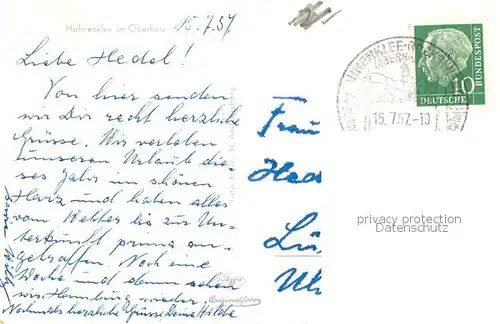 Hahnenklee im Oberharz
15.7.57
Liebe Hedel!
Von hier senden
wir Dir recht herzliche
Grüsse. Wir verleben
unseren Urlaub die-
ses Jahr im schönen
Harz und haben alles
vom Wetter bis zur Un-
terkunft prima an-
getroffen. Noch eine
Woche und dann sehen
wir Hamburg wieder.
Nochmals herzliche Grüsse Deine Hilde
Frau
Hed
Lü
DEUTSCHE BUNDESPOST
10
HAHNENKLEE-BOCKSWIESE
15.7.57.-10
privacy protection
Datenschutz